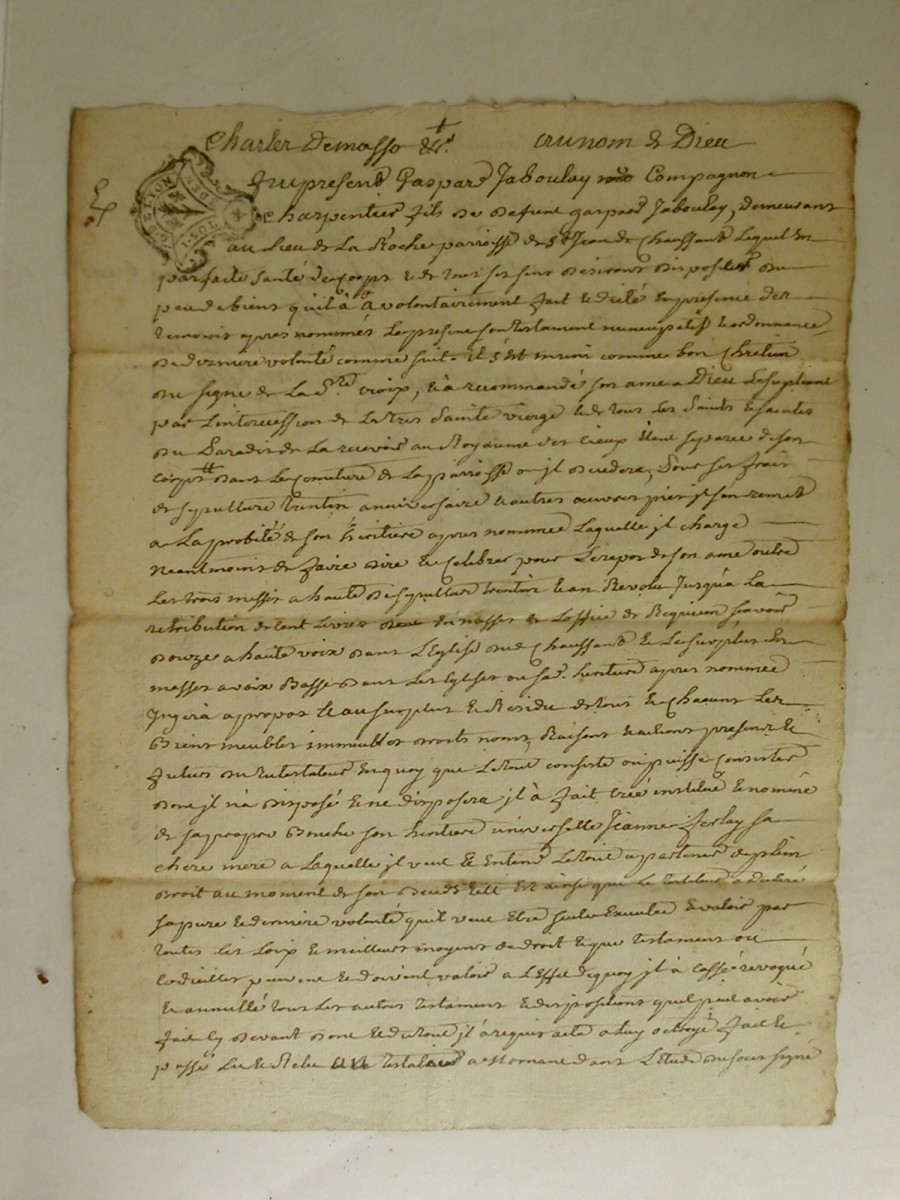 Charles Demasso &c. au nom de Dieu
Fut present Gaspard Jaboulay Compagnon
Charpentier fils de defunt gaspard Jaboulay, demeurant
au Lieu de La Roche parroisse de St Jean de Chaussant Lequel en
parfaite santé de corps & de tous ses sens desirant disposer du
peu de biens quil à a volontairement fait & dicté en presence des
temoins apres nommés Le present son testament nuncupatif & ordonnance
de derniere volonté comme suit. il s'est muni comme bon Chretien
du signe de La Ste croix, & à recommandé son ame a Dieu Le supliant
par L'intercession de La tres Sainte vierge & de tous Les Saints & saintes
du Paradis de La recevoir au Royaume des Cieux étant separée de son
corps dans Le Cimetiere de La parroisse ou jl decedera, Pour ses frais
de sepulture trentin anniversaire & autres œuvres pies jl s'en remet
a La probité de son heritiere apres nommée Laquelle jl charge
neantmoins de faire dire & Celebrer pour Le repos de son ame outre
Les trois messes a haute de sepulture trentin & an Revolu Jusqu'a La
retribution de cent Livres de messes & L'office de Requiem scavoir
douze a haute voix dans L'Eglise dud Chaussant & Le surplus en
messes a voix Basse dans Les Eglises ou sad. heritiere apres nommée
Jugera apropos & au surplus & Residu de tous & Chacuns Les
Biens meubles immeubles droits noms, Raisons & actions presents &
futurs dud testateur En quoy que Le tout consiste ou puisse Consister
dont jl n'a disposé & ne disposera jl à fait creé institué & nommé
de sa propre Bouche son heritiere universelle Jeanne Ferlay sa
chere mere a Laquelle jl veut & Entend Le tout apartenir de plein
droit au moment de son decés telle Est ainsi que Le testateur a declaré
sa pure & derniere volonté quil veut Etre seule Executée & valoir par
toutes Les Loix & meilleurs moyens de droit & que testament ou
Codicilles peuvent & doivent valoir a L'Effet de quoy jl à Cassé revoqué
& annullé tous Les autres testament & dispositions quil peut avoir
fait cy devant dont & du tout jl a requis acte a Luy octroyé fait &
passé Lu & Relu testateur a Mornant dans L'Etude du soussigné